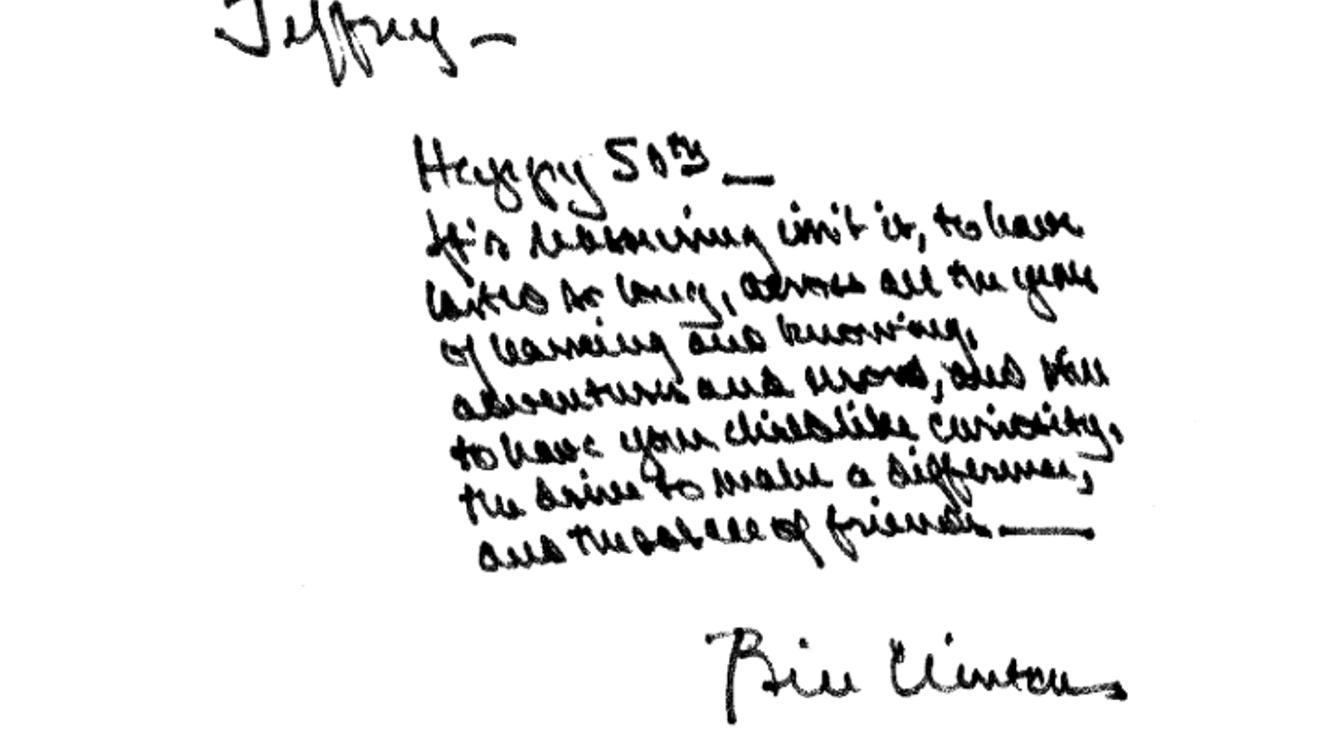 Jeffrey –
Happy 50th –
It's reassuring isn't it, to have
lasted so long, across all the years
of learning and knowing,
adventures and and still
to have your childlike curiosity,
the drive to make a difference,
and the solace of friends –
Bill Clinton